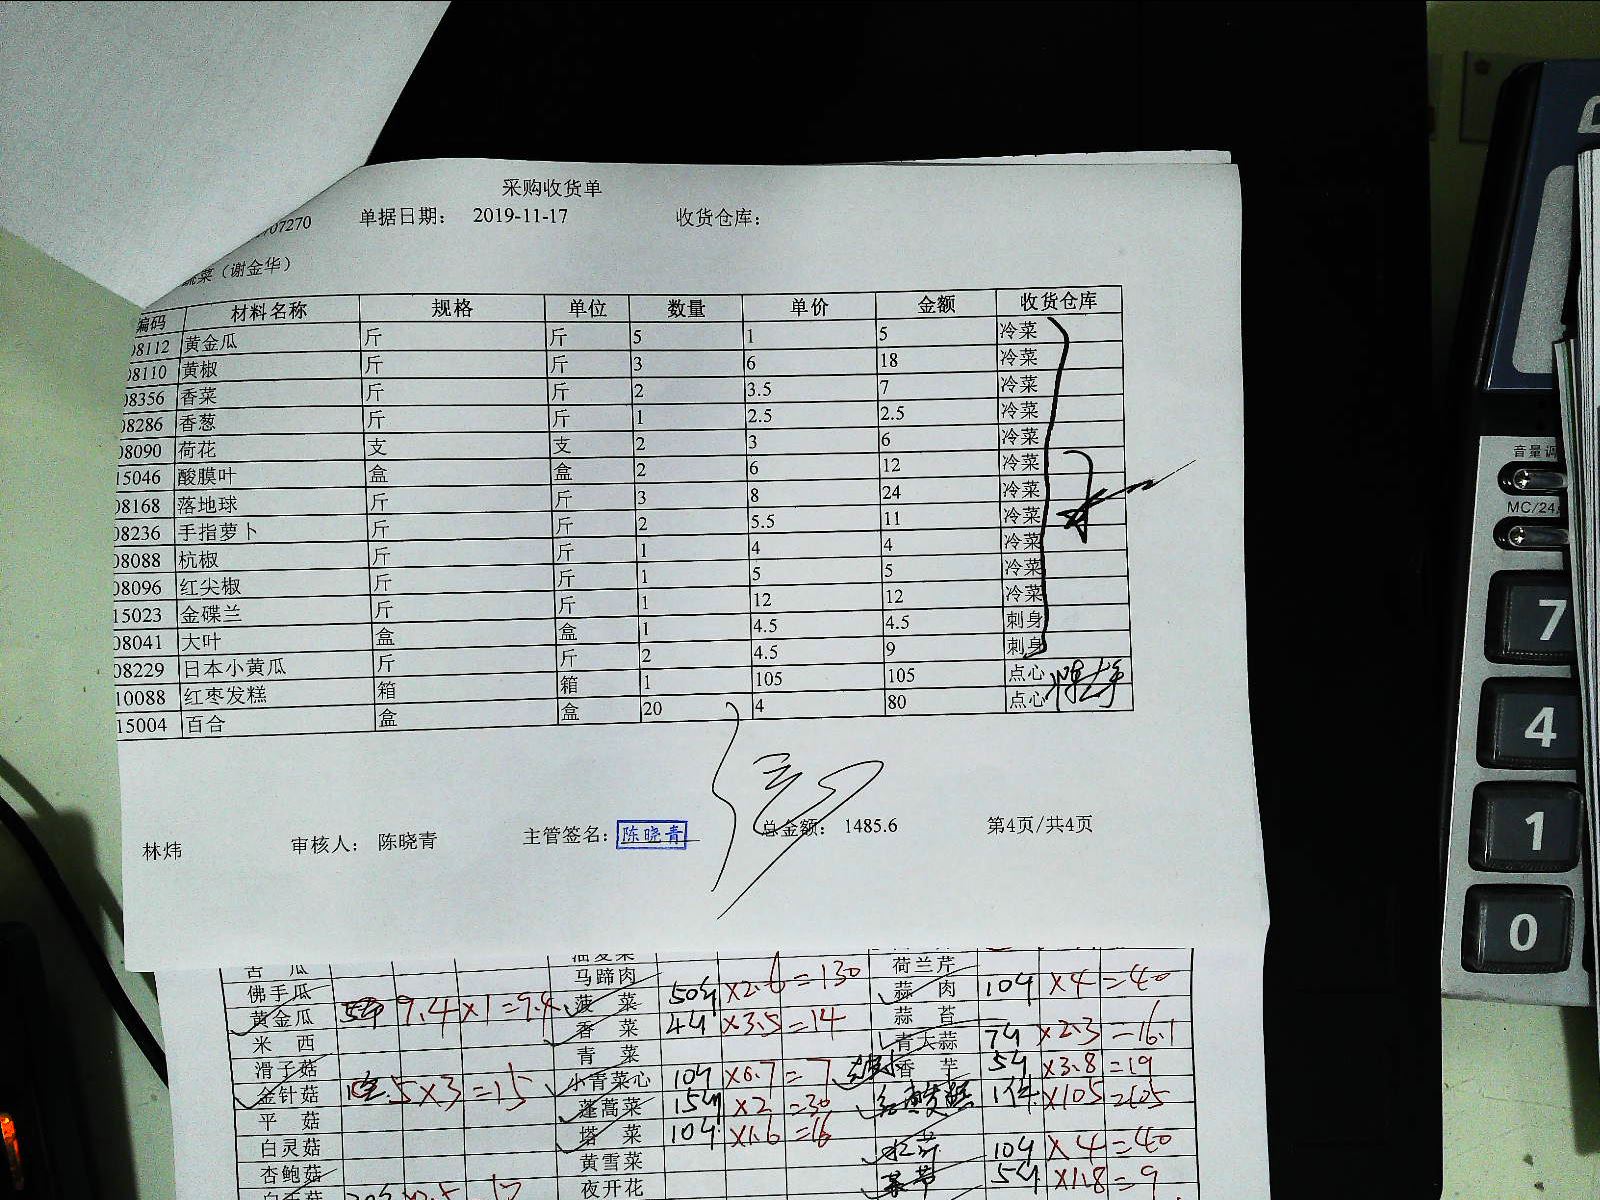 采购收货单
07270 单据日期: 2019-11-17 收货仓库:
蔬菜（谢金华）
编码 材料名称 规格 单位 数量 单价 金额 收货仓库
08112 黄金瓜 斤 斤 5 1 5 冷菜
08110 黄椒 斤 斤 3 6 18 冷菜
08356 香菜 斤 斤 2 3.5 7 冷菜
08286 香葱 斤 斤 1 2.5 2.5 冷菜
08090 荷花 支 支 2 3 6 冷菜
15046 酸膜叶 盒 盒 2 6 12 冷菜
08168 落地球 斤 斤 3 8 24 冷菜
08236 手指萝卜 斤 斤 2 5.5 11 冷菜
08088 杭椒 斤 斤 1 4 4 冷菜
08096 红尖椒 斤 斤 1 5 5 冷菜
15023 金碟兰 斤 斤 1 12 12 冷菜
08041 大叶 盒 盒 1 4.5 4.5 刺身
08229 日本小黄瓜 斤 斤 2 4.5 9 刺身
10088 红枣发糕 箱 箱 1 105 105 点心
15004 百合 盒 盒 20 4 80 点心
林炜 审核人: 陈晓青 主管签名: 陈晓青 总金额: 1485.6 第4页/共4页
苦瓜 油麦菜
佛手瓜 马蹄肉 荷兰芹
黄金瓜 9.4×1=9.4 菠菜 50斤 ×2.6=130 蒜肉 10斤 ×4=40
米西 香菜 4斤 ×3.5=14 蒜苔
滑子菇 青菜 青大蒜 7斤 ×2.3=16.1
金针菇 5×3=15 小青菜心 10斤 ×0.7=7 香芋 5斤 ×3.8=19
平菇 蓬蒿菜 15斤 ×2=30 红枣发糕 1件 ×105=105
白灵菇 塔菜 10斤 ×1.6=16
杏鲍菇 黄雪菜 10斤 ×4=40
夜开花 5斤 ×1.8=9
音量调
MC/24
7
4
1
0